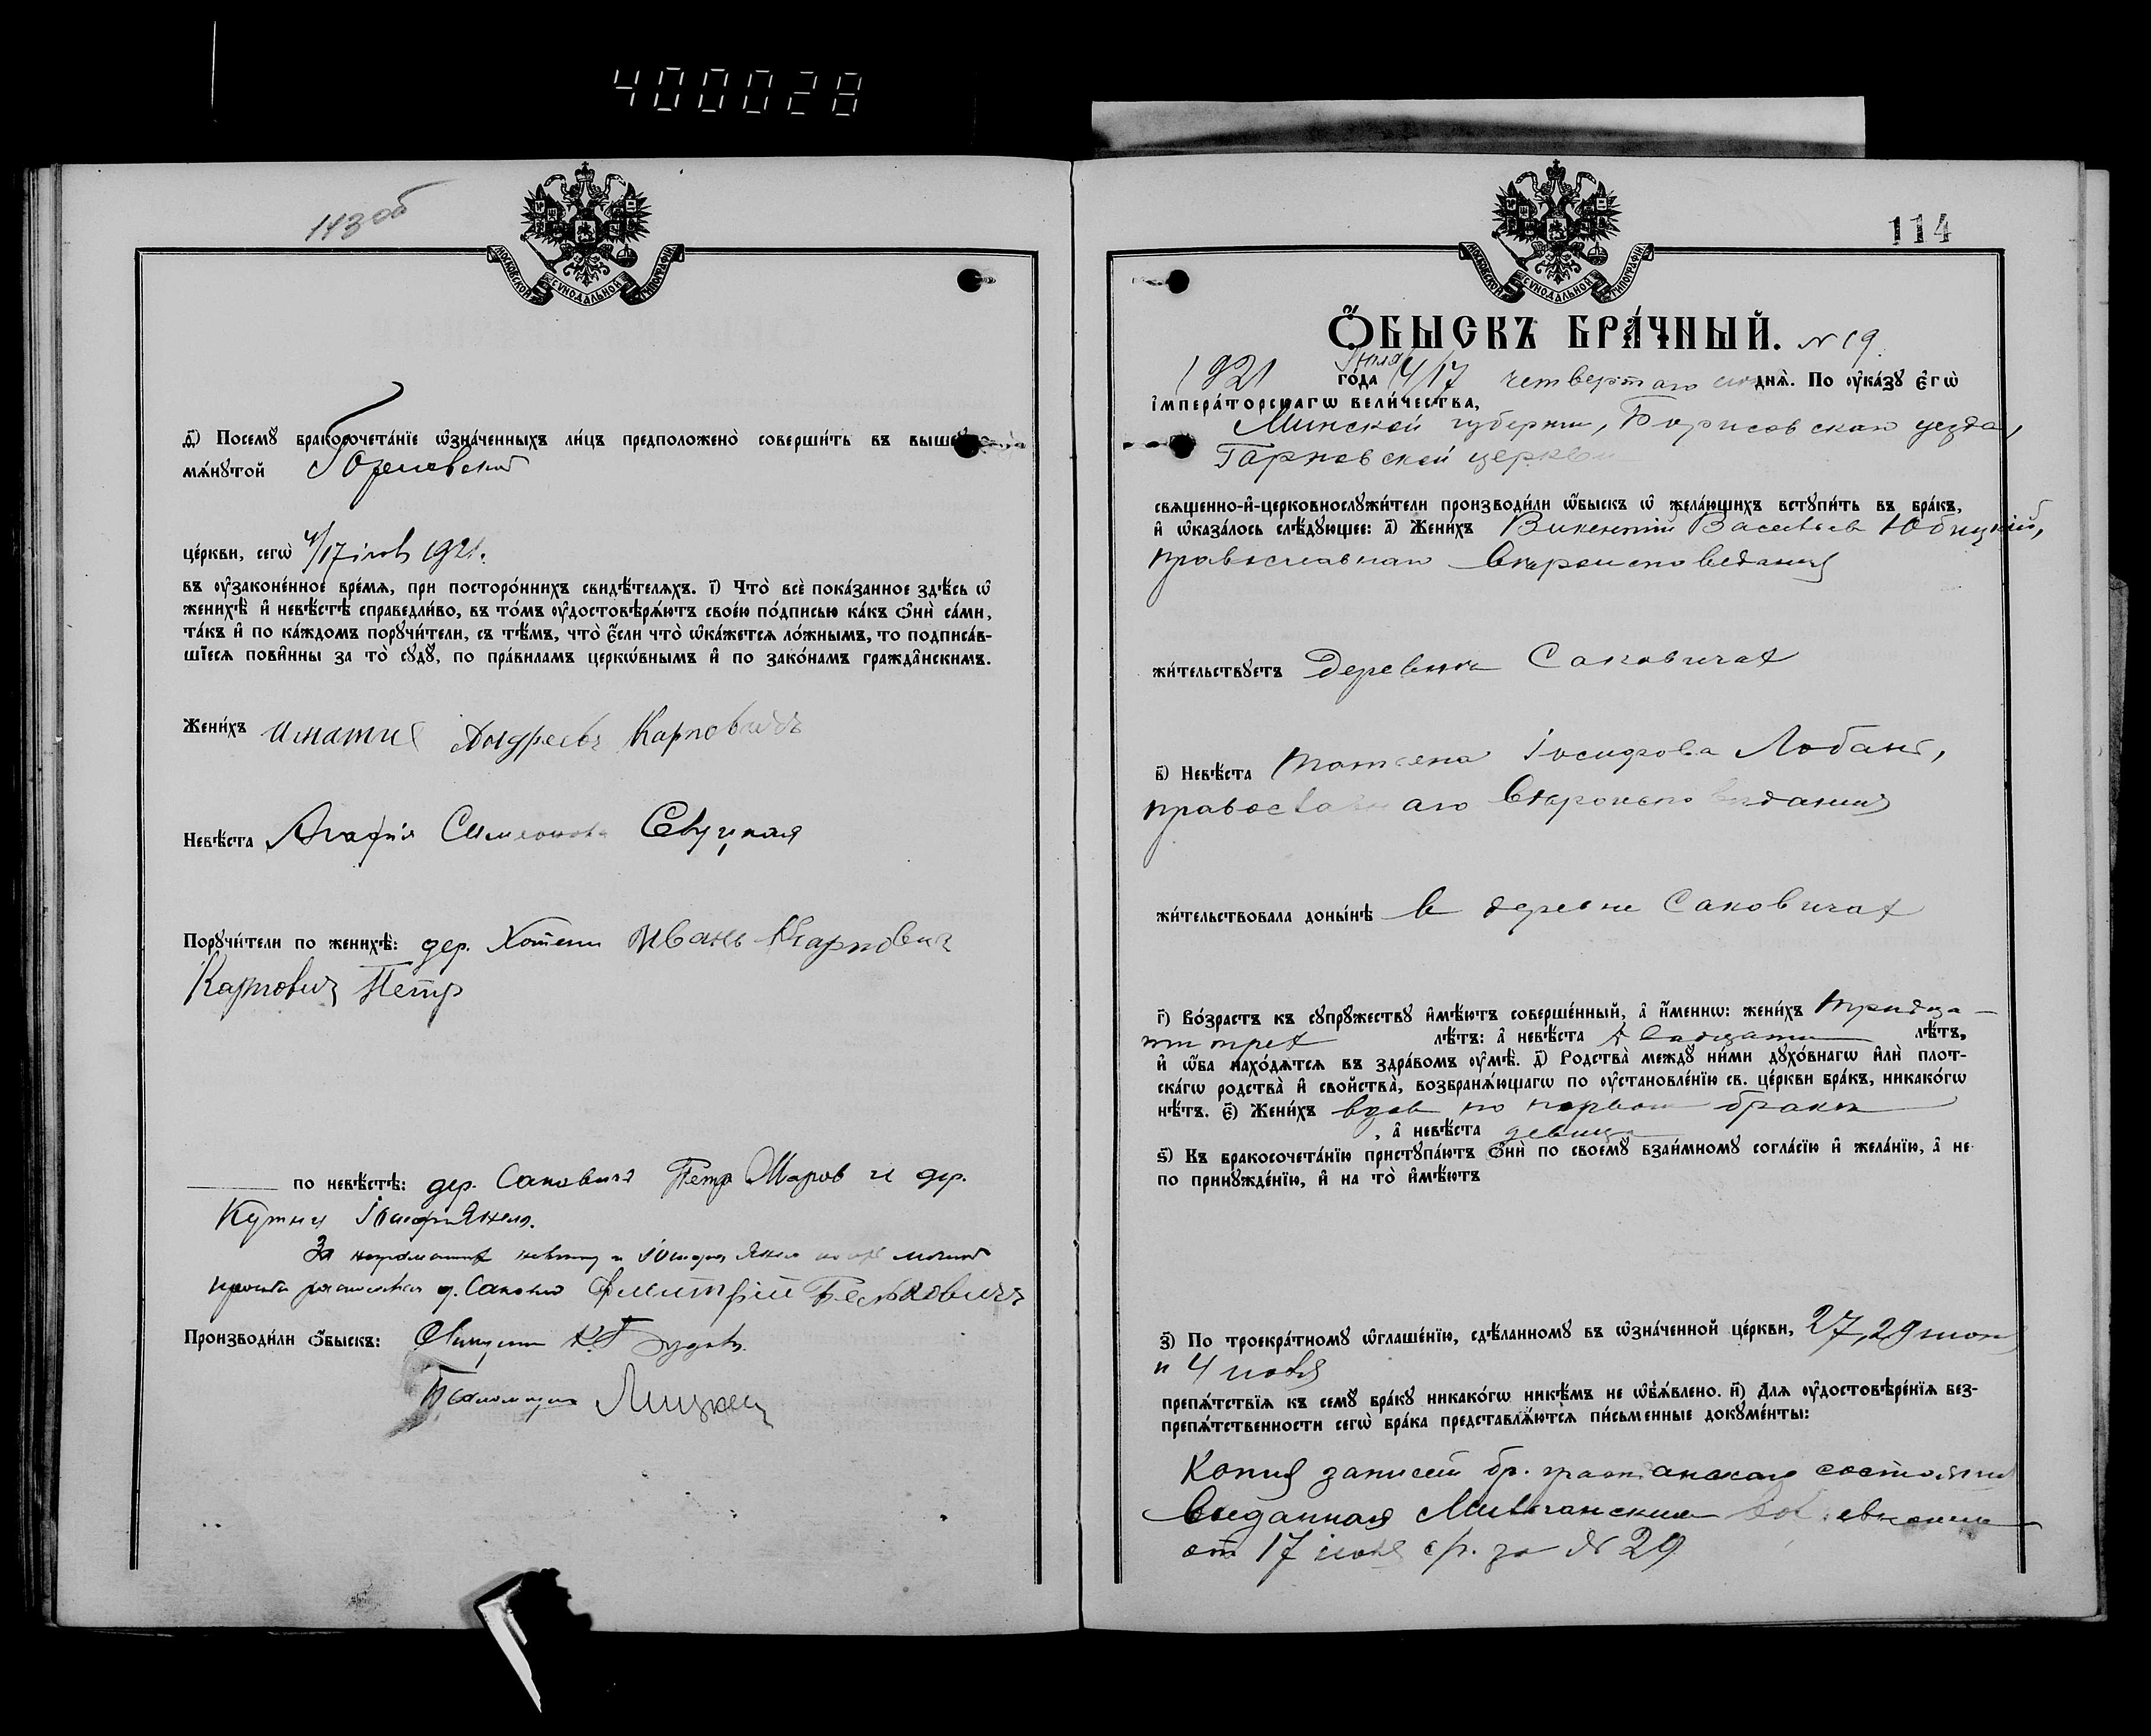 400028
113 об
МОСКОВСКОЙ СѴНОДАЛЬНОЙ ТИПОГРАФІИ
д҃) Посемꙋ̀ бракосочета́нїе ѡ҆зна́ченныхъ ли́цъ предположено̀ соверши́ть въ выше
мѧ́нꙋтой
це́ркви, сегѡ̀ 4/17 1921.
въ ᲂу҆зако́ненное вре́мѧ, при посторо́ннихъ свидѣ́телѧхъ. і҃) Что̀ всѐ пока́занное здѣ́сь ѡ҆
женихѣ̀ и҆ невѣ́стѣ справедли́во, въ то́мъ ᲂу҆достовѣрѧ́ютъ свое́ю по́дписью ка́къ ѻ҆нѝ са́ми,
та́къ и҆ по ка́ждомъ порꙋчи́тели, съ тѣ́мъ, что̀ е҆́сли что̀ ѡ҆ка́жетсѧ ло́жнымъ, то подписа́в-
шїесѧ пови́нны за то̀ сꙋдꙋ̀, по пра́виламъ церко́внымъ и҆ по зако́намъ гражда́нскимъ.
Жени́хъ Игнатий Андреевъ Карповичъ
Невѣ́ста Агафія Симеонова
Порꙋчи́тели по женихѣ̀: дер. Иванъ Карпович
Карпович Петр
по невѣ́стѣ: дер. Сакович Петр Жаров и дер.
За
Дмитрій
Произво́дили ѻ҆́быскъ:
Псаломщик Лицкец
МОСКОВСКОЙ СѴНОДАЛЬНОЙ ТИПОГРАФІИ
114
Ѻ҆́БЫСКЪ БРА́ЧНЫЙ. N 19.
1921 го́да 4/17 четвертаго днѧ̀. По ᲂу҆ка́зꙋ є҆гѡ̀
і҆мпера́торскагѡ вели́чества,
Минской губернии, Борисовскаго уезда,
церкви
свѧще́нно-и҆-церковнослꙋжи́тели производи́ли ѡ҆́быскъ ѡ҆ жела́ющихъ встꙋпи́ть въ бра́къ,
и҆ ѡ҆каза́лось слѣ́дꙋющее: а҃) Жени́хъ Викентий Васильев Юбницкий,
православнаго вероисповедания
жи́тельствꙋетъ Деревни Саковичах
в҃) Невѣ́ста Татьяна Иосифова Лобан,
православнаго вероисповедания
жи́тельствовала доны́нѣ в деревне Саковичах
г҃) Во́зрастъ къ сꙋпрꙋ́жествꙋ и҆мѣ́ютъ соверше́нный, а҆ и҆́меннѡ: жени́хъ тридца-
ти трех лѣ́тъ: а҆ невѣ́ста двадцати лѣ́тъ,
и҆ ѡ҆́ба нахо́дѧтсѧ въ здра́вомъ ᲂу҆мѣ̀. д҃) Родства̀ междꙋ̀ ни́ми дꙋхо́внагѡ и҆лѝ плот-
ска́гѡ родства̀ и҆ сво́йства̀, возбранѧ́ющагѡ по ᲂу҆становле́нїю св. це́ркви бра́къ, никако́гѡ
нѣ́тъ. є҃) Жени́хъ вдов по первом браке
, а҆ невѣ́ста девица
ѕ҃) Къ бракосочета́нїю пристꙋпа́ютъ ѻ҆нѝ по своемꙋ̀ взаи́мномꙋ согла́сїю и҆ жела́нїю, а҆ не
по принꙋжде́нїю, и҆ на то̀ и҆мѣ́ютъ
з҃) По троекра́тномꙋ ѡ҆глаше́нїю, сдѣ́ланномꙋ въ ѡ҆зна́ченной це́ркви, 27, 29 июня
и 4 июля
препѧ́тствїѧ къ семꙋ̀ бра́кꙋ никако́гѡ никѣ́мъ не ѡ҆б̾ѧ́влено. и҃) Длѧ ᲂу҆достовѣре́нїѧ без-
препѧ́тственности сегѡ̀ бра́ка представлѧ́ютсѧ пи́сьменные докꙋме́нты:
Копия записей гражданскаго состояния
выданная Мильчанским
от 17 июля с/г. за N 29